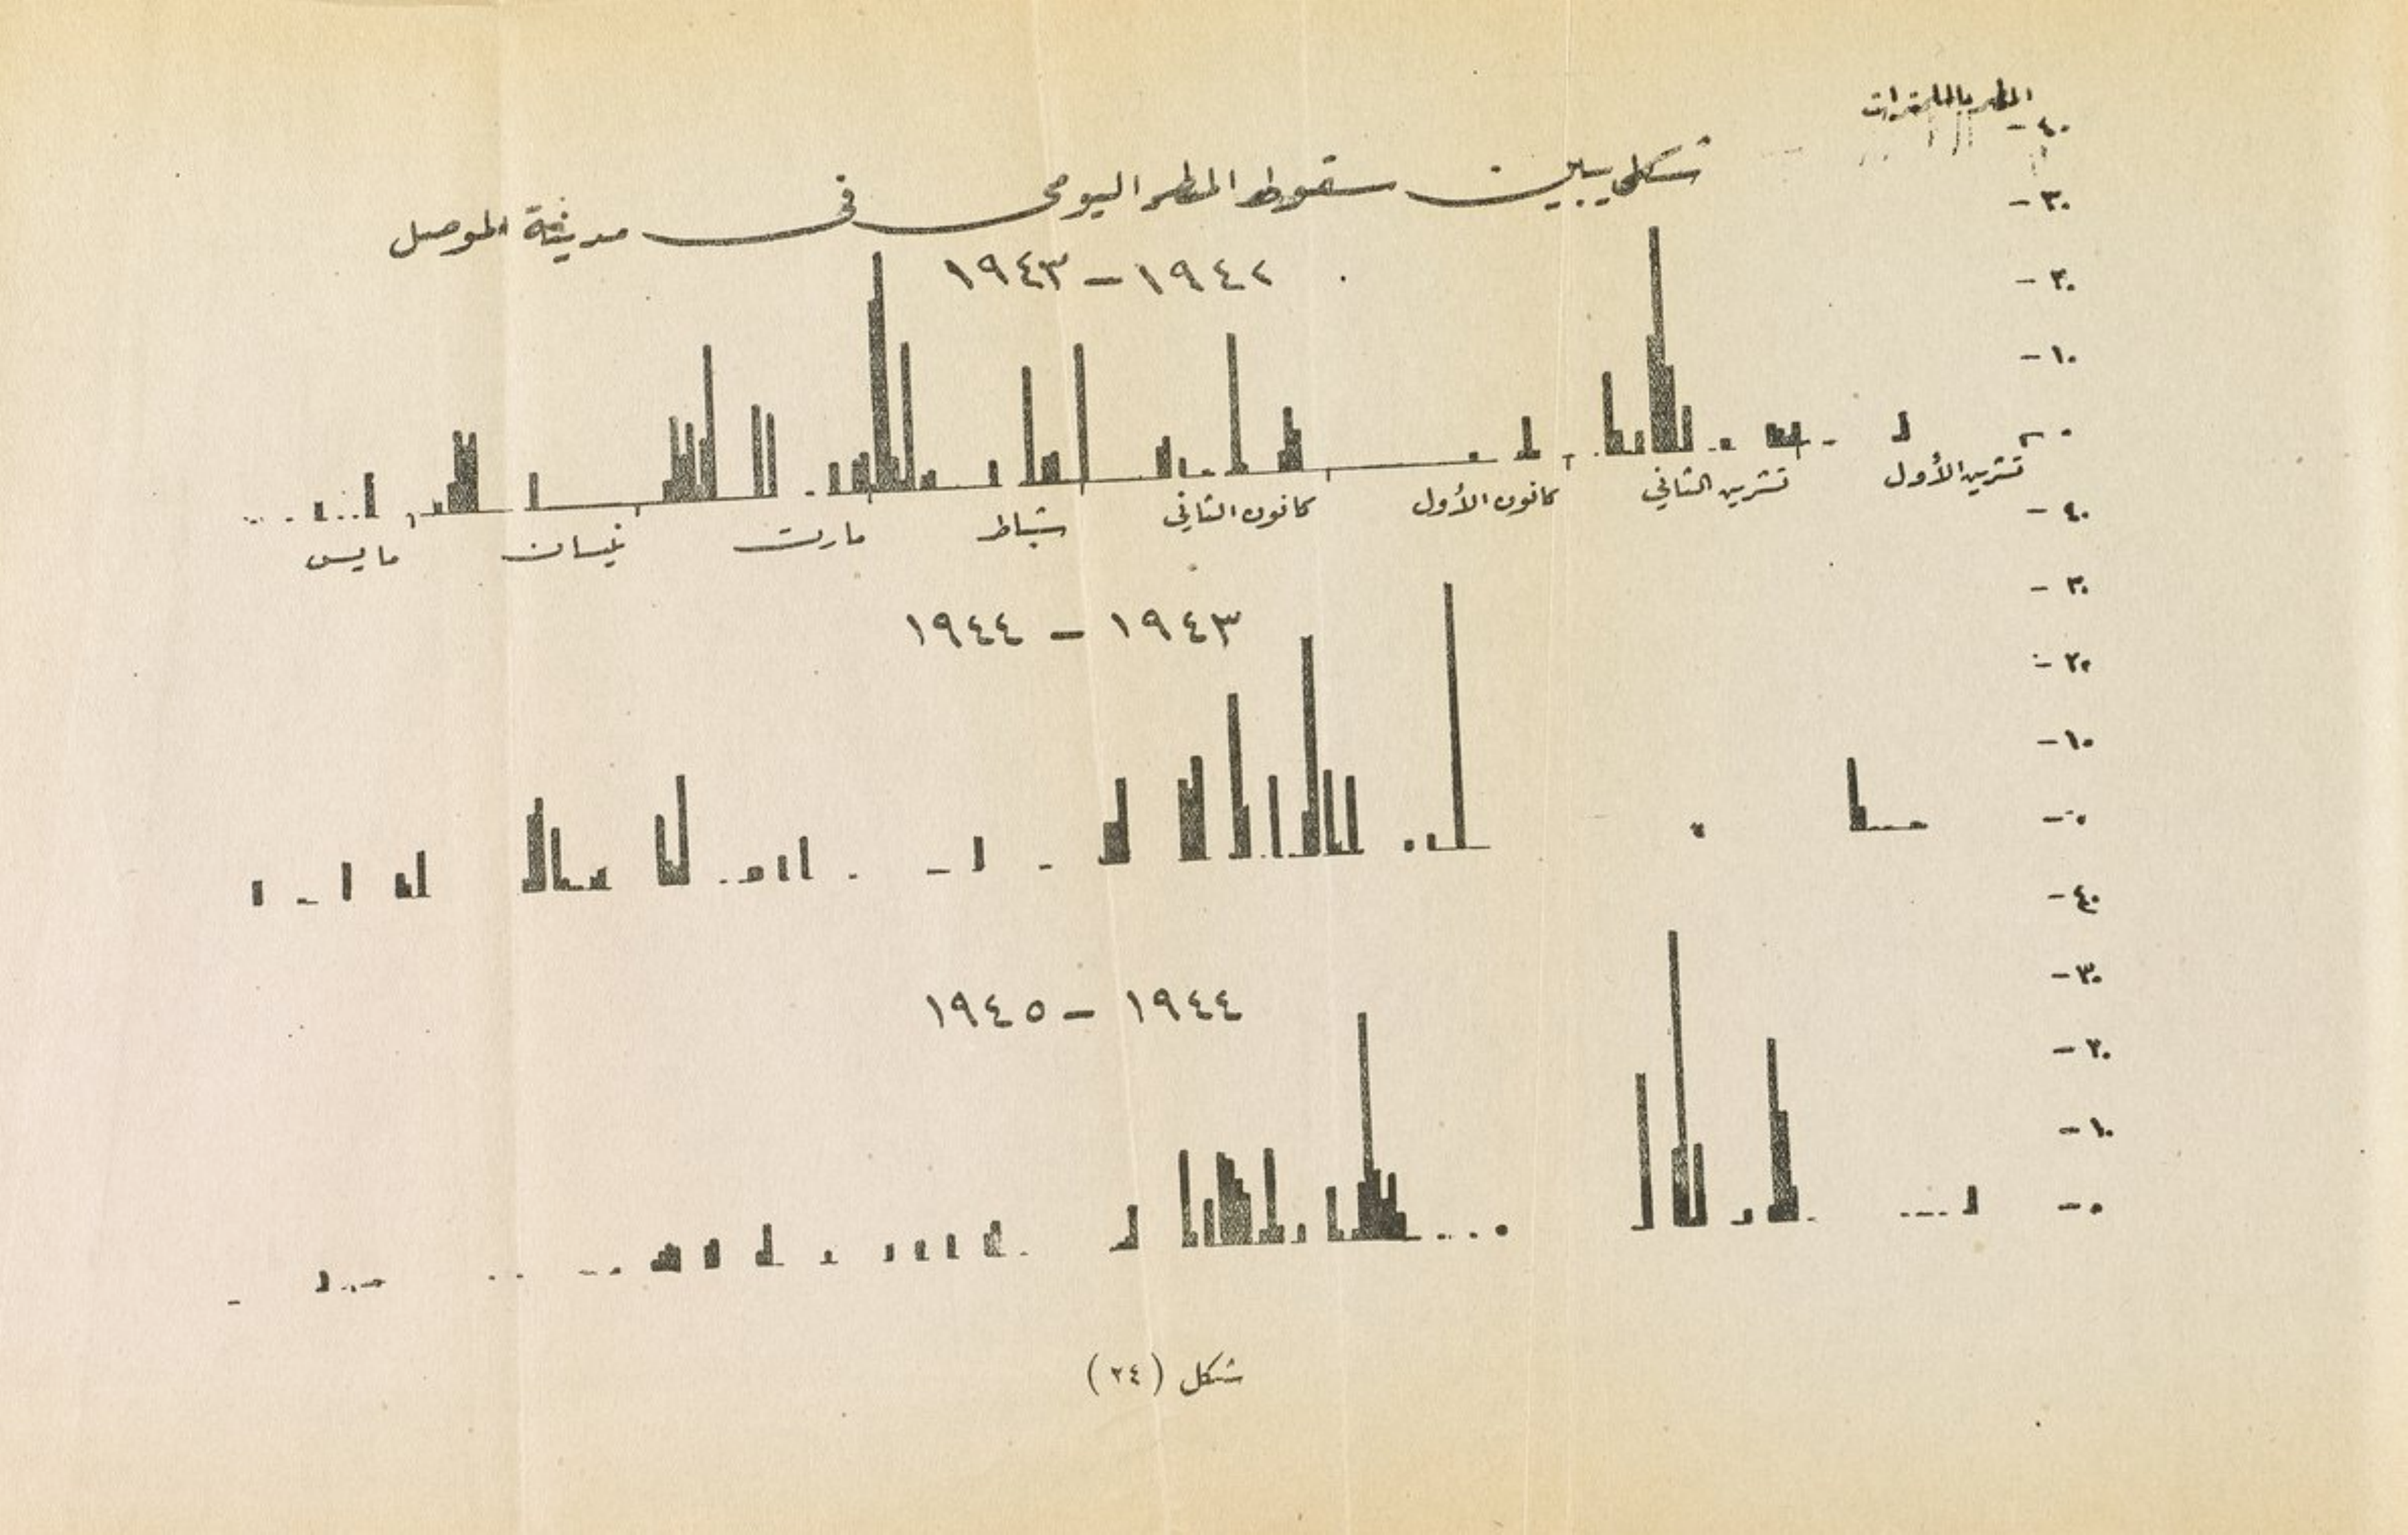 المطر بالملمترات
شكل يبين سقوط المطر اليومي في مدينة الموصل
١٩٤٢ – ١٩٤٣
٤٠ -
٣٠ -
٢٠ -
١٠ -
٠ -
تشرين الأول تشرين الثاني كانون الأول كانون الثاني شباط مارت نيسان مايس
١٩٤٣ – ١٩٤٤
٤٠ -
٣٠ -
٢٠ -
١٠ -
٠ -
١٩٤٤ – ١٩٤٥
٤٠ -
٣٠ -
٢٠ -
١٠ -
٠ -
شكل (٢٤)